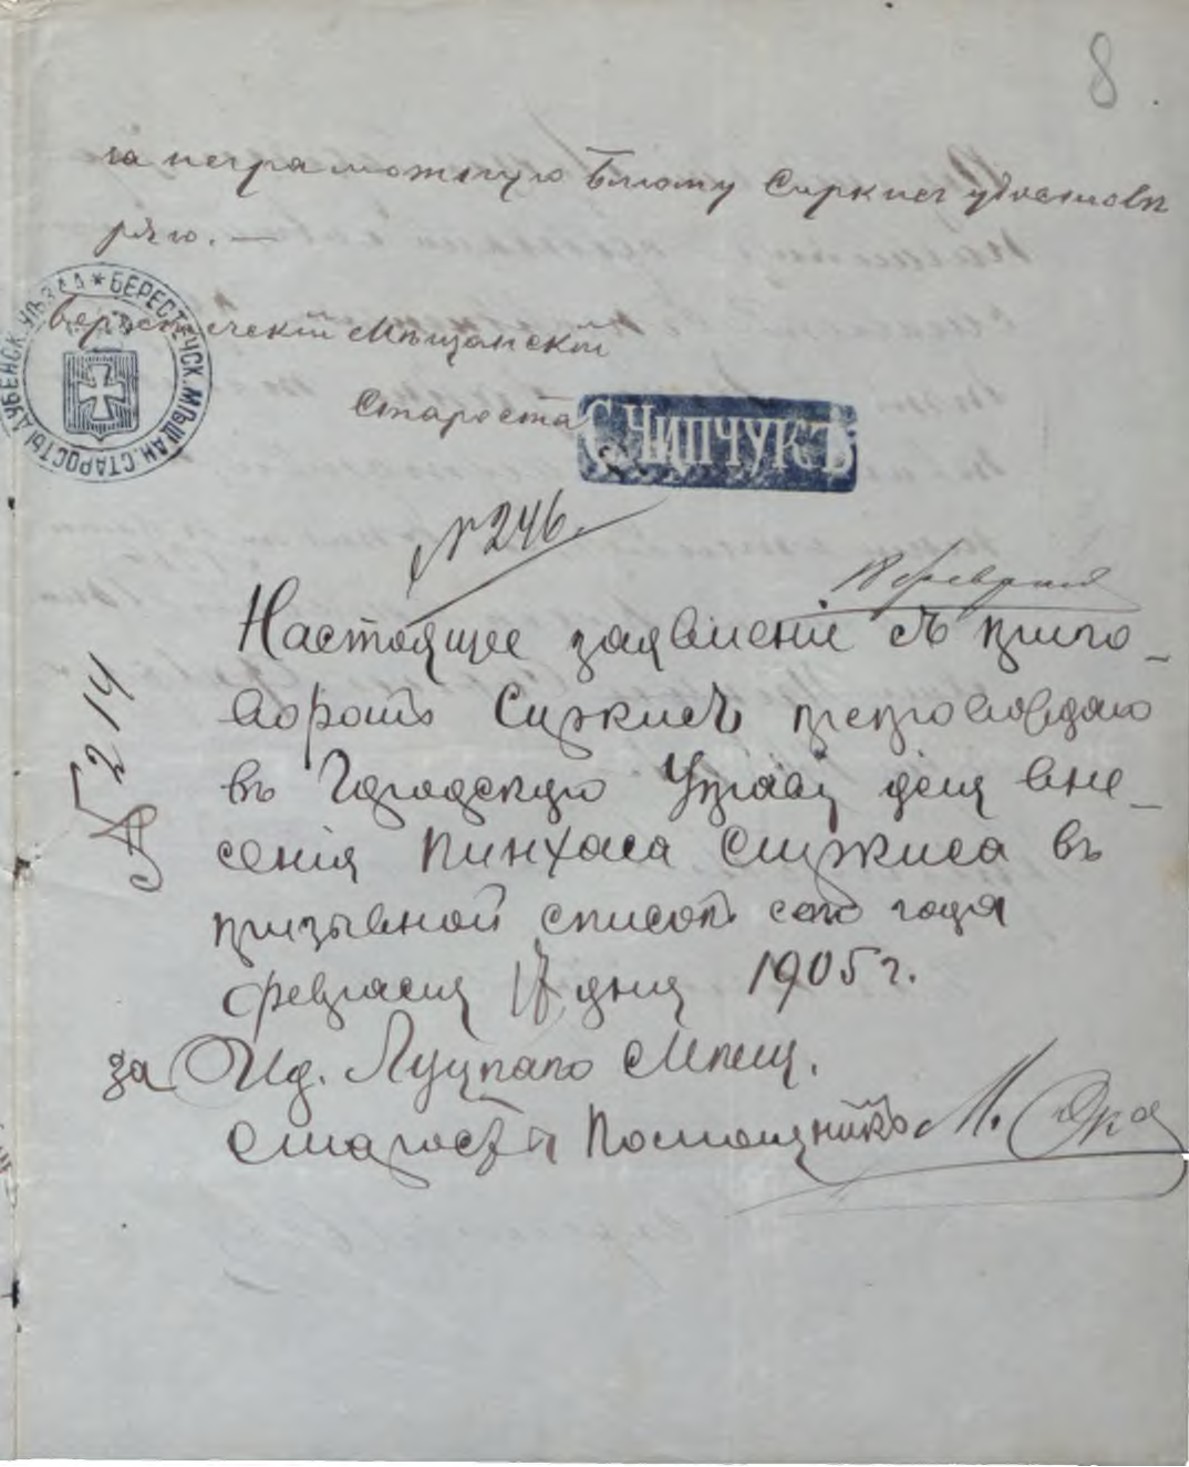 8
за неграмотную Блюму Сиркисъ удостовѣ
ряю. —
Берестечскій Мѣщанскій
Староста С. ЧИПЧУКЪ
ДУБЕНСК. УѢЗДА * БЕРЕСТЕЧСК. МѢЩАН. СТАРОСТЫ
№ 246.
февраля
№ 214
Настоящее заявленіе съ приго-
воромъ Сиркисъ препровождаю
въ Городскую Управу для вне-
сенія Пинхаса Сиркиса въ
призывной списокъ сего года
февраля 17 дня 1905 г.
за Ид. Луцкаго Мѣщ.
старосты Помощникъ М.